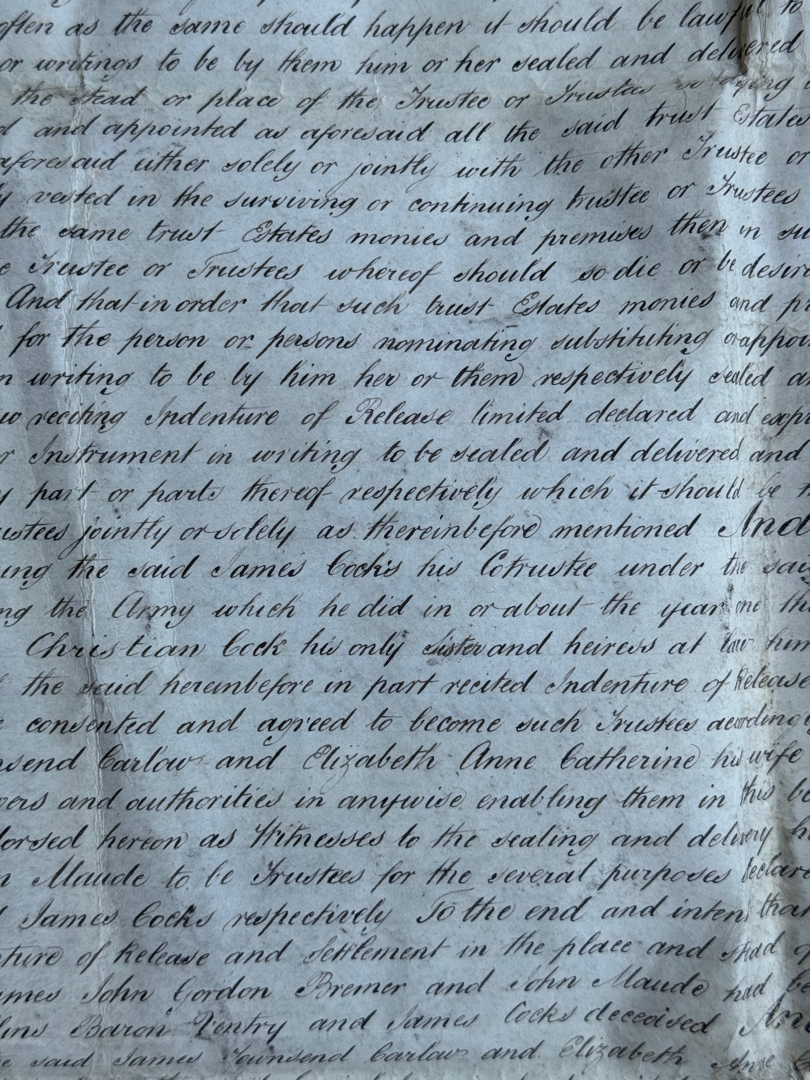 often as the same should happen it should be lawful to
or writings to be by them him or her sealed and delivered
the stead or place of the Trustee or Trustees so dying
d and appointed as aforesaid all the said trust Estates
aforesaid either solely or jointly with the other Trustee or
ly vested in the surviving or continuing trustee or Trustees
the same trust Estates monies and premises then in su
e Trustee or Trustees whereof should so die or be desir
And that in order that such trust Estates monies and pr
for the person or persons nominating substituting or appoin
n writing to be by him her or them respectively sealed a
w reciting Indenture of Release limited declared and expr
r Instrument in writing to be sealed and delivered and
y part or parts thereof respectively which it should be
ustees jointly or solely as thereinbefore mentioned And
ing the said James Cocks his Cotrustee under the said
ng the Army which he did in or about the year one th
Christian Cock his only Sister and heiress at law him
the said hereinbefore in part recited Indenture of Release
e consented and agreed to become such Trustees accordingly
nsend Carlow and Elizabeth Anne Catherine his wife
wers and authorities in anywise enabling them in this be
dorsed hereon as Witnesses to the sealing and delivery h
n Maude to be Trustees for the several purposes declare
d James Cocks respectively To the end and intent that
ture of Release and Settlement in the place and stead of
ames John Gordon Bremer and John Maude had be
lins Baron Ventry and James Cocks deceased An
he said James Townsend Carlow and Elizabeth Anne C